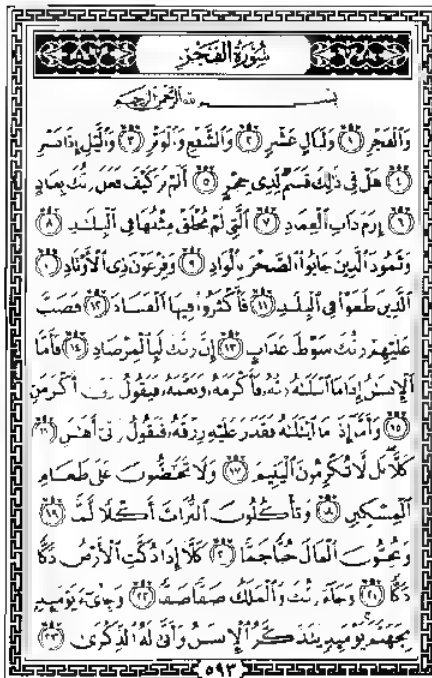 سُورَةُ الفَجْرِ
بِسْمِ اللَّهِ الرَّحْمَٰنِ الرَّحِيمِ
وَالْفَجْرِ ﴿١﴾ وَلَيَالٍ عَشْرٍ ﴿٢﴾ وَالشَّفْعِ وَالْوَتْرِ ﴿٣﴾ وَالَّيْلِ إِذَا يَسْرِ
﴿٤﴾ هَلْ فِي ذَٰلِكَ قَسَمٌ لِّذِي حِجْرٍ ﴿٥﴾ أَلَمْ تَرَ كَيْفَ فَعَلَ رَبُّكَ بِعَادٍ
﴿٦﴾ إِرَمَ ذَاتِ الْعِمَادِ ﴿٧﴾ الَّتِي لَمْ يُخْلَقْ مِثْلُهَا فِي الْبِلَٰدِ ﴿٨﴾
وَثَمُودَ الَّذِينَ جَابُوا الصَّخْرَ بِالْوَادِ ﴿٩﴾ وَفِرْعَوْنَ ذِي الْأَوْتَادِ ﴿١٠﴾
الَّذِينَ طَغَوْا فِي الْبِلَٰدِ ﴿١١﴾ فَأَكْثَرُوا فِيهَا الْفَسَادَ ﴿١٢﴾ فَصَبَّ
عَلَيْهِمْ رَبُّكَ سَوْطَ عَذَابٍ ﴿١٣﴾ إِنَّ رَبَّكَ لَبِالْمِرْصَادِ ﴿١٤﴾ فَأَمَّا
الْإِنسَٰنُ إِذَا مَا ابْتَلَىٰهُ رَبُّهُ فَأَكْرَمَهُ وَنَعَّمَهُ فَيَقُولُ رَبِّي أَكْرَمَنِ
﴿١٥﴾ وَأَمَّا إِذَا مَا ابْتَلَىٰهُ فَقَدَرَ عَلَيْهِ رِزْقَهُ فَيَقُولُ رَبِّي أَهَٰنَنِ ﴿١٦﴾
كَلَّا بَل لَّا تُكْرِمُونَ الْيَتِيمَ ﴿١٧﴾ وَلَا تَحَٰضُّونَ عَلَىٰ طَعَامِ
الْمِسْكِينِ ﴿١٨﴾ وَتَأْكُلُونَ التُّرَاثَ أَكْلًا لَّمًّا ﴿١٩﴾
وَتُحِبُّونَ الْمَالَ حُبًّا جَمًّا ﴿٢٠﴾ كَلَّا إِذَا دُكَّتِ الْأَرْضُ دَكًّا
دَكًّا ﴿٢١﴾ وَجَاءَ رَبُّكَ وَالْمَلَكُ صَفًّا صَفًّا ﴿٢٢﴾ وَجِايءَ يَوْمَئِذٍ
بِجَهَنَّمَ يَوْمَئِذٍ يَتَذَكَّرُ الْإِنسَٰنُ وَأَنَّىٰ لَهُ الذِّكْرَىٰ ﴿٢٣﴾
٥٩٣